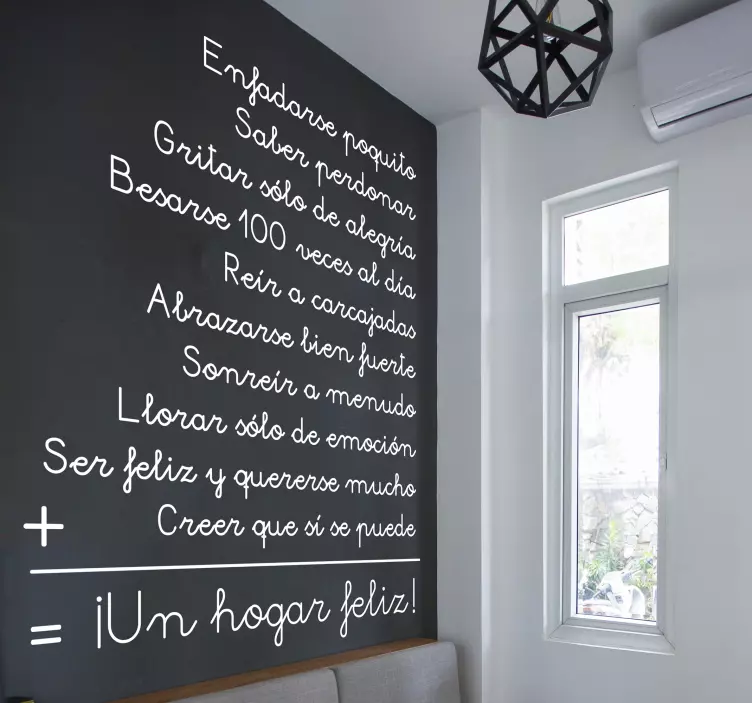 Enfadarse poquito
Saber perdonar
Gritar sólo de alegría
Besarse 100 veces al día
Reír a carcajadas
Abrazarse bien fuerte
Sonreír a menudo
Llorar sólo de emoción
Ser feliz y quererse mucho
+ Creer que sí se puede
= ¡Un hogar feliz!